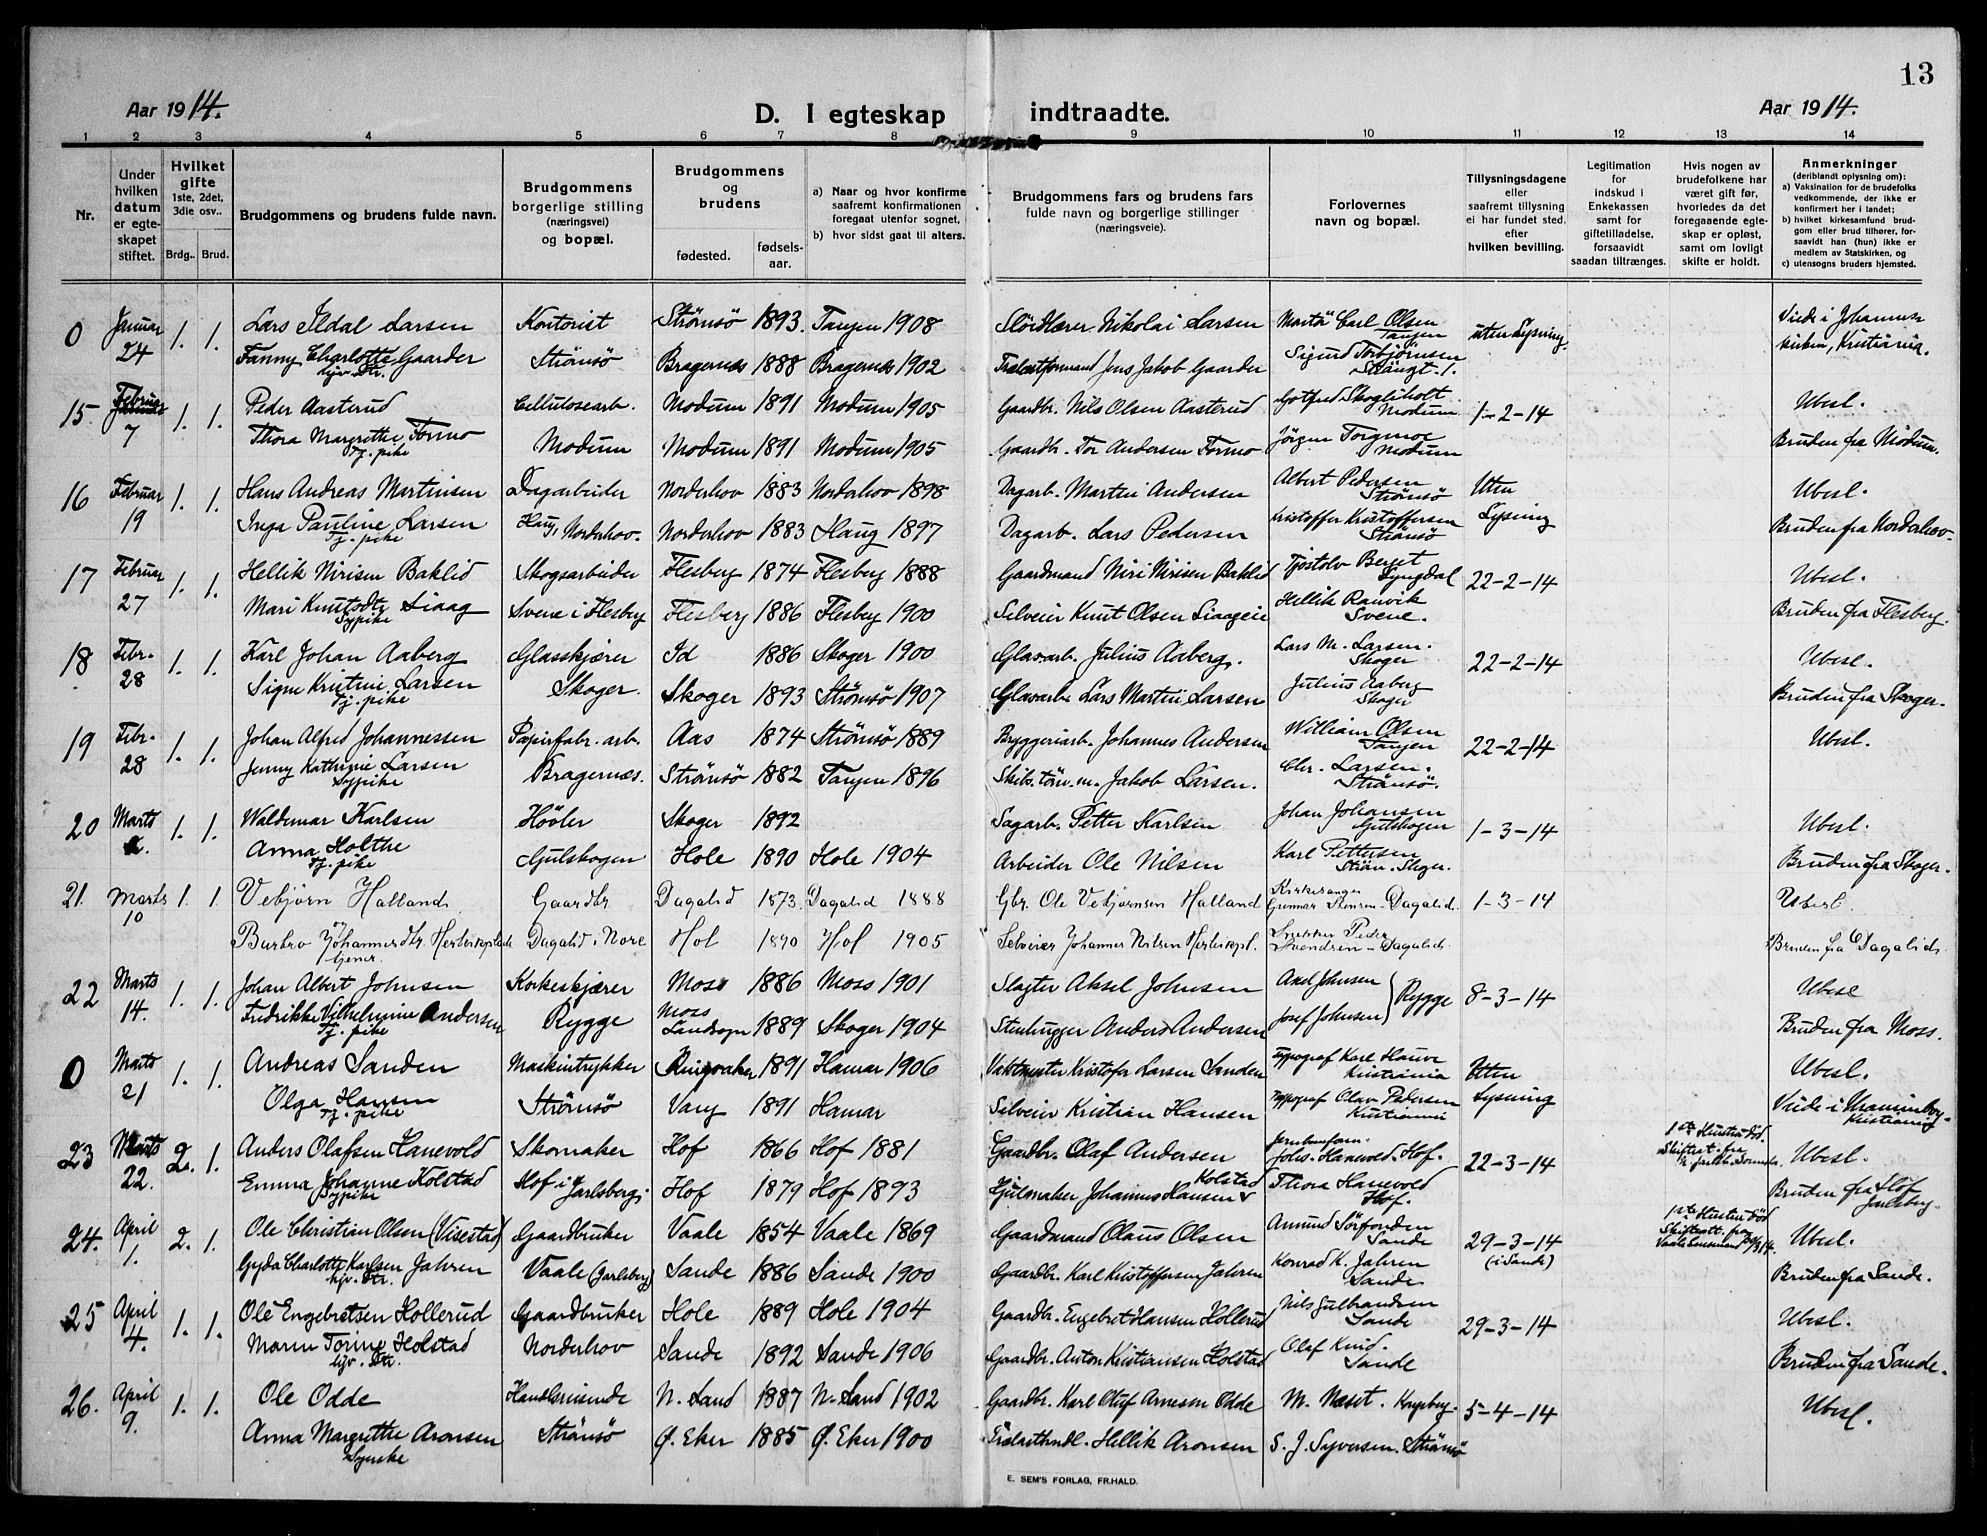 13
Aar 1914.
D. I egteskap indtraadte.
Aar 1914.
1 2 3 4 5 6 7 8 9 10 11 12 13 14
Nr.
Under hvilken datum er egte-skapet stiftet.
Hvilket gifte 1ste, 2det, 3die osv..
Brdg.. Brud.
Brudgommens og brudens fulde navn.
Brudgommens borgerlige stilling (næringsvei) og bopæl.
Brudgommens og brudens
fødested. fødsels-aar.
a) Naar og hvor konfirme saafremt konfirmationen foregaat utenfor sognet,
b) hvor sidst gaat til alters.
Brudgommens fars og brudens fars fulde navn og borgerlige stillinger (næringsveie).
Forlovernes navn og bopæl.
Tillysningsdagene eller saafremt tillysning ei har fundet sted. efter hvilken bevilling.
Legitimation for indskud i Enkekassen samt for giftetilladelse, forsaavidt saadan tiltrænges.
Hvis nogen av brudefolkene har været gift før, hvorledes da det foregaaende egte-skap er opløst, samt om lovligt skifte er holdt.
Anmerkninger (deriblandt oplysning om):
a) Vaksination for de brudefolks vedkommende, der ikke er konfirmert her i landet;
b) hvilket kirkesamfund brud-gom eller brud tilhører, for-saavidt han (hun) ikke er medlem av Statskirken, og
c) utensogns bruders hjemsted.
0 Januar 24 1. 1. Lars Ildal Larsen Kontorist Strømsö 1893. Tangen 1908 Slöidlærer Nikolai Larsen Carl Olsen Tangen uten Lysning. Viede i Johannes-
Fanny Charlotte Gaarder hjv. Dtr. Strømsö Bragernæs 1888 Bragernæs 1902 Jens Jakob Gaarder Sigurd Torbjørnsen kirken, Kristiania.
15 Februar 7 1. 1. Peder Aasterud Cellulosearb. Modum 1891 Modum 1905 Gaardbr. Nils Olsen Aasterud Gotfred Skogliholt Modum 1-2-14 Ubesl.
Thora Margrethe Formo Tj. pike Modum Modum 1891 Modum 1905 Gaardbr. Tor Andersen Formo Jörgen Torgmoe Modum Bruden fra Modum.
16 Februar 19 1. 1. Hans Andreas Martinsen Dagarbeider Norderhov 1883 Norderhov 1898 Dagarb. Martin Andersen Albert Pedersen Strømsö Uten Lysning Ubesl.
Inga Pauline Larsen Tj. pike Haug, Norderhov. Norderhov 1883 Haug 1897 Dagarb. Lars Pedersen Kristoffer Kristoffersen Strømsö Bruden fra Norderhov.
17 Februar 27 1. 1. Hellik Nirisen Baklid Skogsarbeider Flesberg 1874 Flesberg 1888 Gaardmand Niri Nirisen Baklid Tjöstolv Berget Lyngdal 22-2-14 Ubesl.
Mari Knutsdtr Liaag Sypike Svene i Flesberg Flesberg 1886 Flesberg 1900 Selveier Knut Olsen Liaageie Hellik Ranvik Svene. Bruden fra Flesberg.
18 Febr. 28 1. 1. Karl Johan Aaberg Glasskjærer Id 1886 Skoger 1900 Glasarb. Julius Aaberg. Lars M. Larsen. Skoger 22-2-14 Ubesl.
Signe Kristine Larsen Tj. pike Skoger. Skoger 1893 Strömsö 1907 Glasarb. Lars Martin Larsen Julius Aaberg Skoger Bruden fra Skoger.
19 Febr. 28 1. 1. Johan Alfred Johannessen Papirfabr. arb. Aas 1874 Strømsö 1889 Bryggeriarb. Johannes Andersen William Olsen Tangen 22-2-14 Ubesl.
Jenny Kathrine Larsen Sypike Bragernæs. Strømsö 1882 Tangen 1896 Skibs.töm.m. Jakob Larsen. Chr. Larsen. Strømsö.
20 Marts 1. 1. Waldemar Karlsen Hövler Skoger 1892 Sagarb. Petter Karlsen Johan Johansen Gulskogen 1-3-14 Ubesl.
Anna Holthe Tj. pike Gulskogen Hole 1890 Hole 1904 Arbeider Ole Nilsen Karl Pettersen Ström. Skoger. Bruden fra Skoger.
21. Marts 10 1. 1. Vebjörn Halland Gaardbr. Dagalid 1873. Dagalid 1888 Gbr. Ole Vebjørnsen Halland Kirkesanger Gunnar Stensen - Dagalid. 1-3-14 Ubesl.
Burbro Johannesdtr. Dagalid i Nore Hol 1890 Hol 1905 Selveier Johannes Nilsen Snekker Peder Svendsen - Dagalid. Bruden fra Dagalid.
22 Marts 14. 1. 1. Johan Albert Johnsen Korkeskjærer Moss 1886 Moss 1901 Slagter Aksel Johnsen Axel Johnsen Rygge 8-3-14 Ubesl
Fredrikke Vilhelmine Andersen Tj. pike Rygge Moss Landsogn 1889 Skoger 1904 Stenhugger Anders Andersen Josef Johnsen Bruden fra Moss.
0 Marts 21 1. 1. Andreas Sanden Maskintrykker Ringsaker 1891 Hamar 1906 Vaktmester Kristofer Larsen Sanden Typograf Karl Hauve Kristiania Uten Lysning Ubesl.
Olga Hansen Tj. pike Strømsö Vang 1891 Hamar Selveier Kristian Hansen Typograf Olav Pedersen Kristiania Viede i Uranienborg Kristiania
23 Marts 22. 2. 1. Anders Olafsen Hanevold Skomaker Hof 1866 Hof 1881 Gaardbr. Olaf Andersen Johs. Hanevold. Hof. 22-3-14 1ste Hustru död. Skifteat. fra Ubesl.
Emma Johanne Kolstad Sypike Hof i Jarlsberg Hof 1879 Hof 1893 Hjulmaker Johannes Hansen Kolstad Thora Hanevold Hof. Bruden fra Hof Jarlsberg.
24. April 1. 2. 1. Ole Christian Olsen (Visestad) Gaardbruker Vaale 1854 Vaale 1869 Gaardmand Olaus Olsen Amund Sörfonden Sande 29-3-14 (i Sande) 1ste Hustru död Skifteatt. fra Vaale Lensmand 20/3 14. Ubesl.
Gyda Charlotte Karlsen Jahren hjv. Dtr. Vaale (Jarlsberg) Sande 1886 Sande 1900 Gaardbr. Karl Kristoffersen Jahren Konrad K. Jahren Sande Bruden fra Sande.
25 April 4. 1. 1. Ole Engebretsen Hollerud Gaardbruker Hole 1889 Hole 1904 Gaardbr. Engebret Hansen Hollerud Nils Gulbrandsen Sande 29-3-14 Ubesl.
Maren Torine Holstad hjv. Dtr. Norderhov Sande 1892 Sande 1906 Gaardbr. Anton Kristiansen Holstad Olaf Knud. Sande Bruden fra Sande.
26. April 9. 1. 1. Ole Odde Handelsreisende N. Land 1887 N. Land 1902 Gaardbr. Karl Oluf Arneson Odde M. Næset. Kongsberg. 5-4-14 Ubesl.
Anna Margrethe Aronsen Syerske Strømsö Ø. Eker 1885 Ø. Eker 1900 Trælasthndl. Hellik Aronsen S. J. Syversen. Strømsö
E. SEM'S FORLAG, FR.HALD.